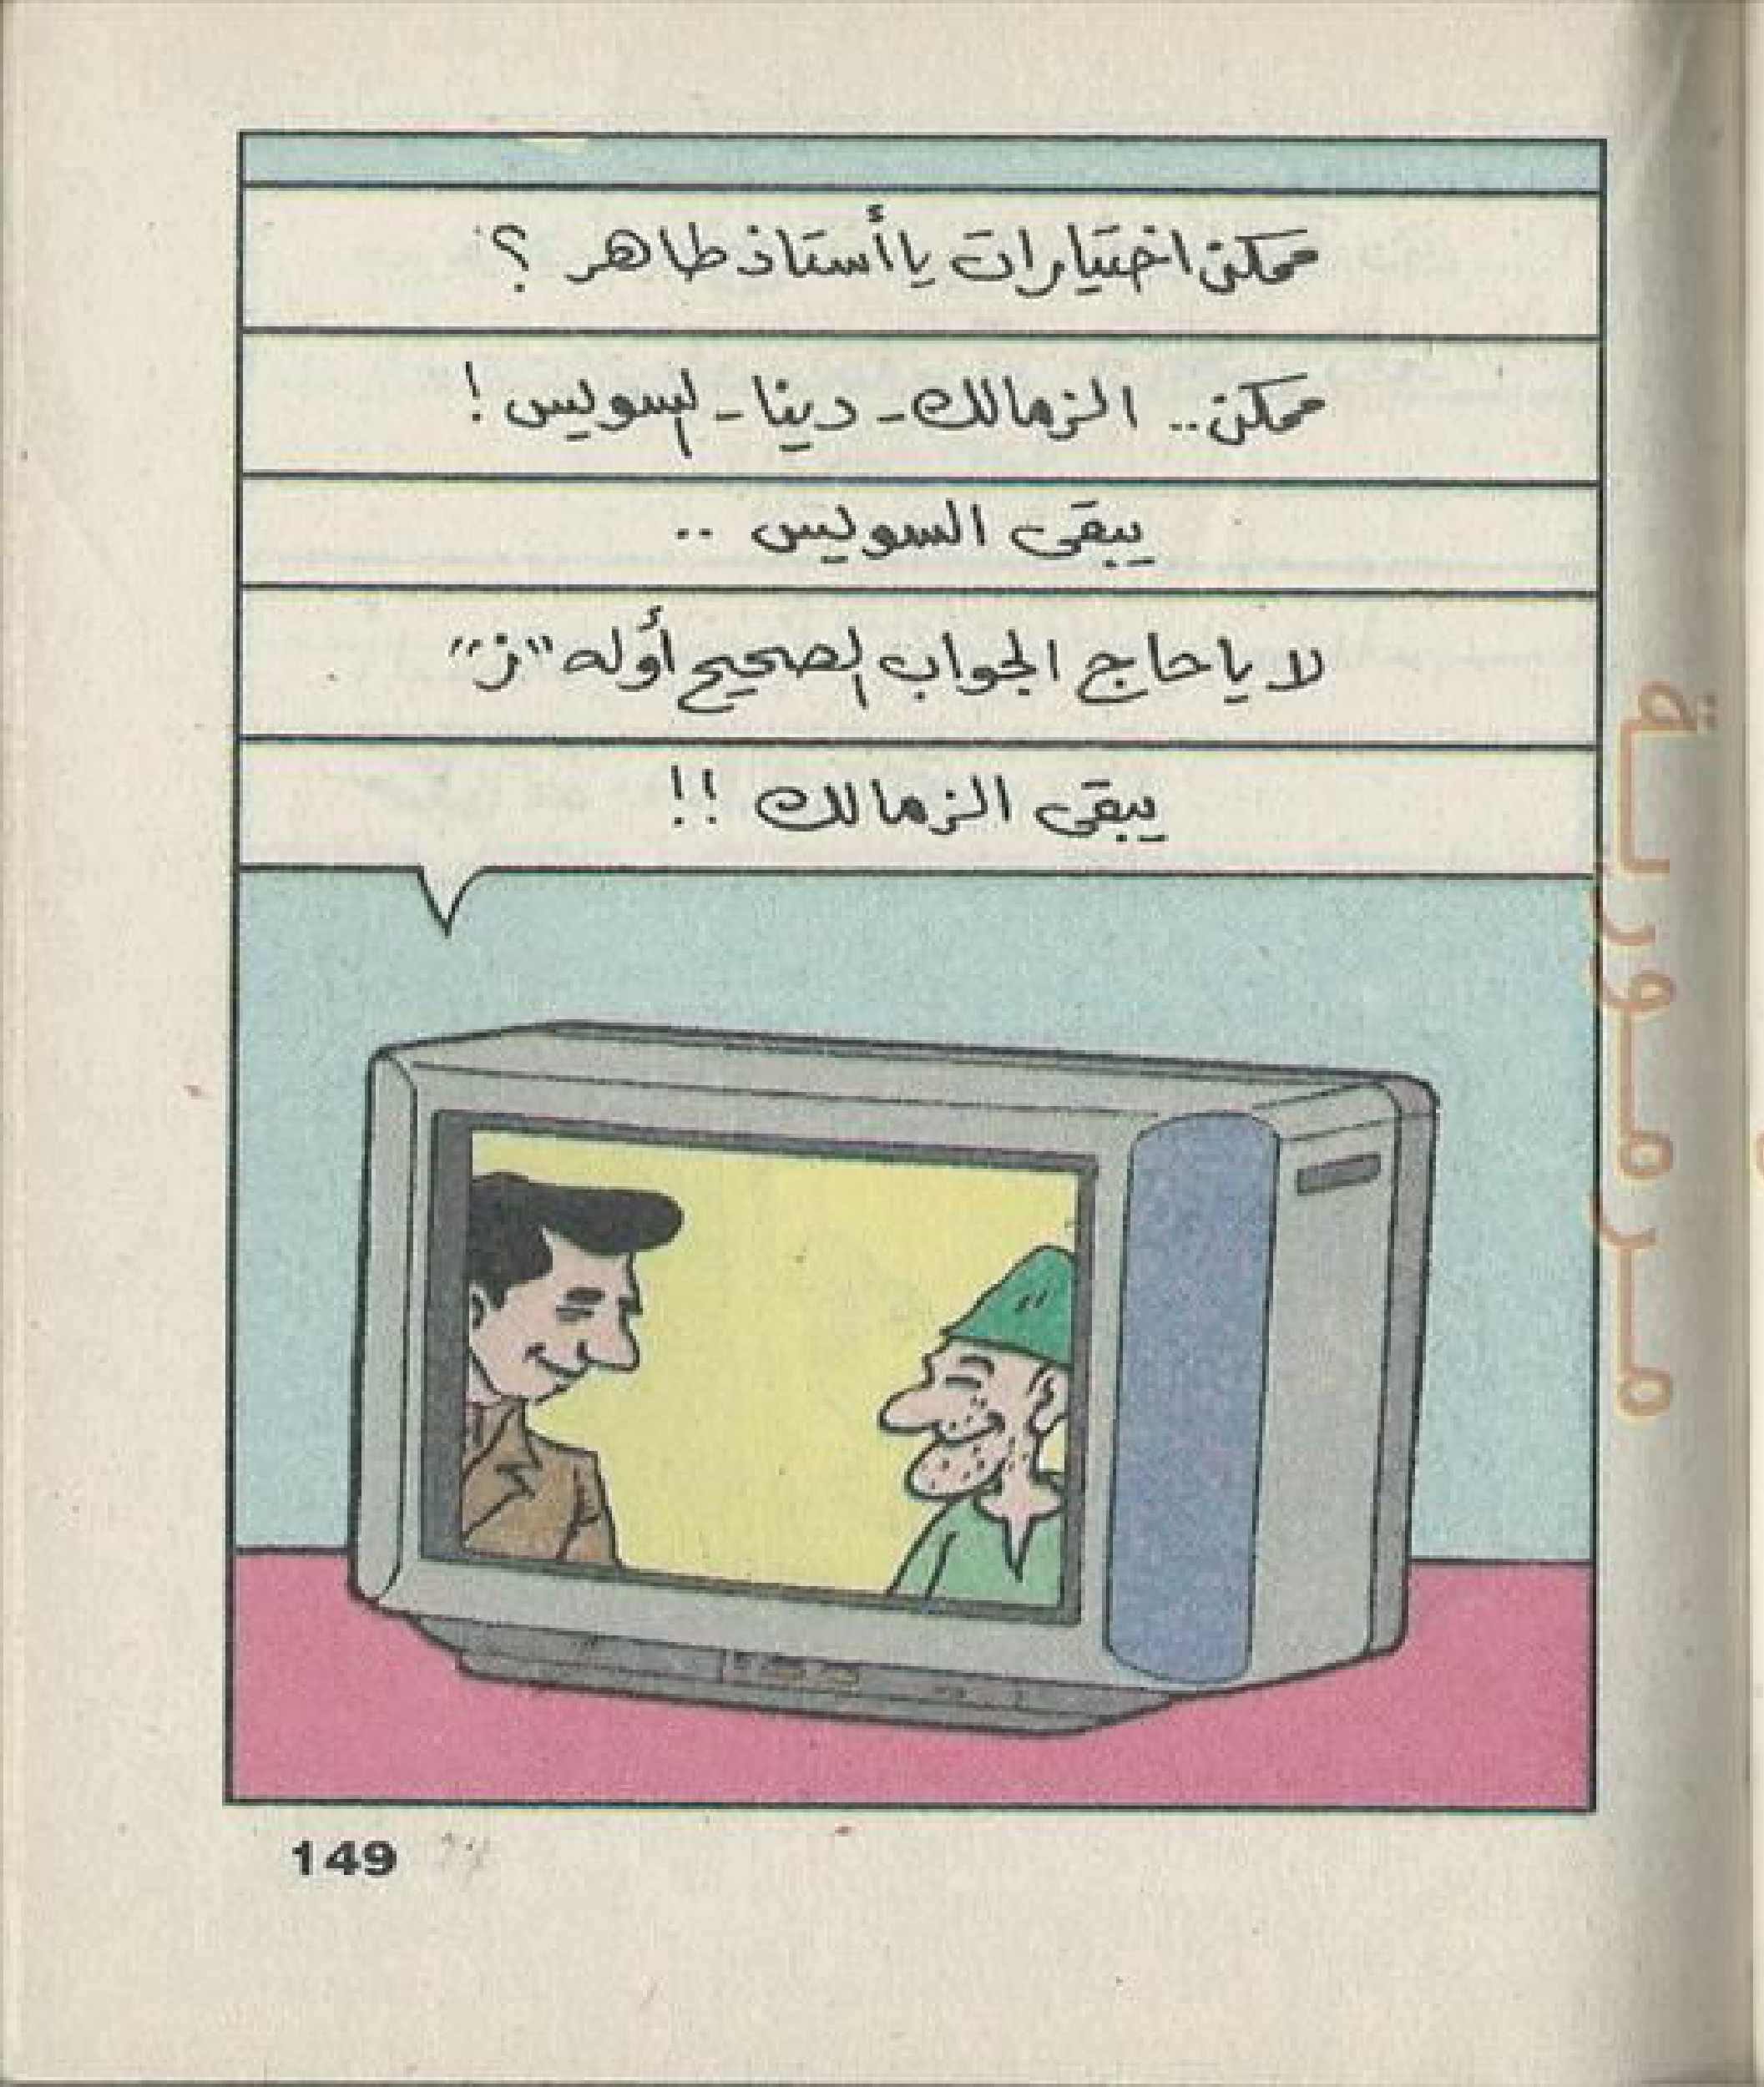 ممكن اختيارات يا أستاذ طاهر ؟
ممكن.. الزمالك - دينا - السويس !
يبقى السويس ..
لا يا حاج الجواب الصحيح أوله "ز"
يبقى الزمالك !!
مرمورية
149